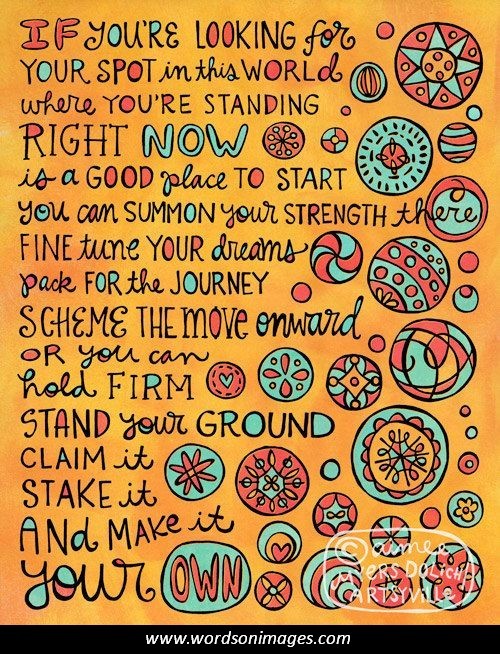 IF you're LOOKING for
YOUR SPOT in this WORLD
where YOU'RE STANDING
RIGHT NOW
is a GOOD place TO START
you can SUMMON your STRENGTH there
FINE tune YOUR dreams
pack FOR the JOURNEY
SCHEME THE MOVE onward
OR you can
hold FIRM
STAND your GROUND
CLAIM it
STAKE it
AND MAKE it
your OWN
© aimee
MYERS DOLICH
ARTSYVILLE
www.wordsonimages.com